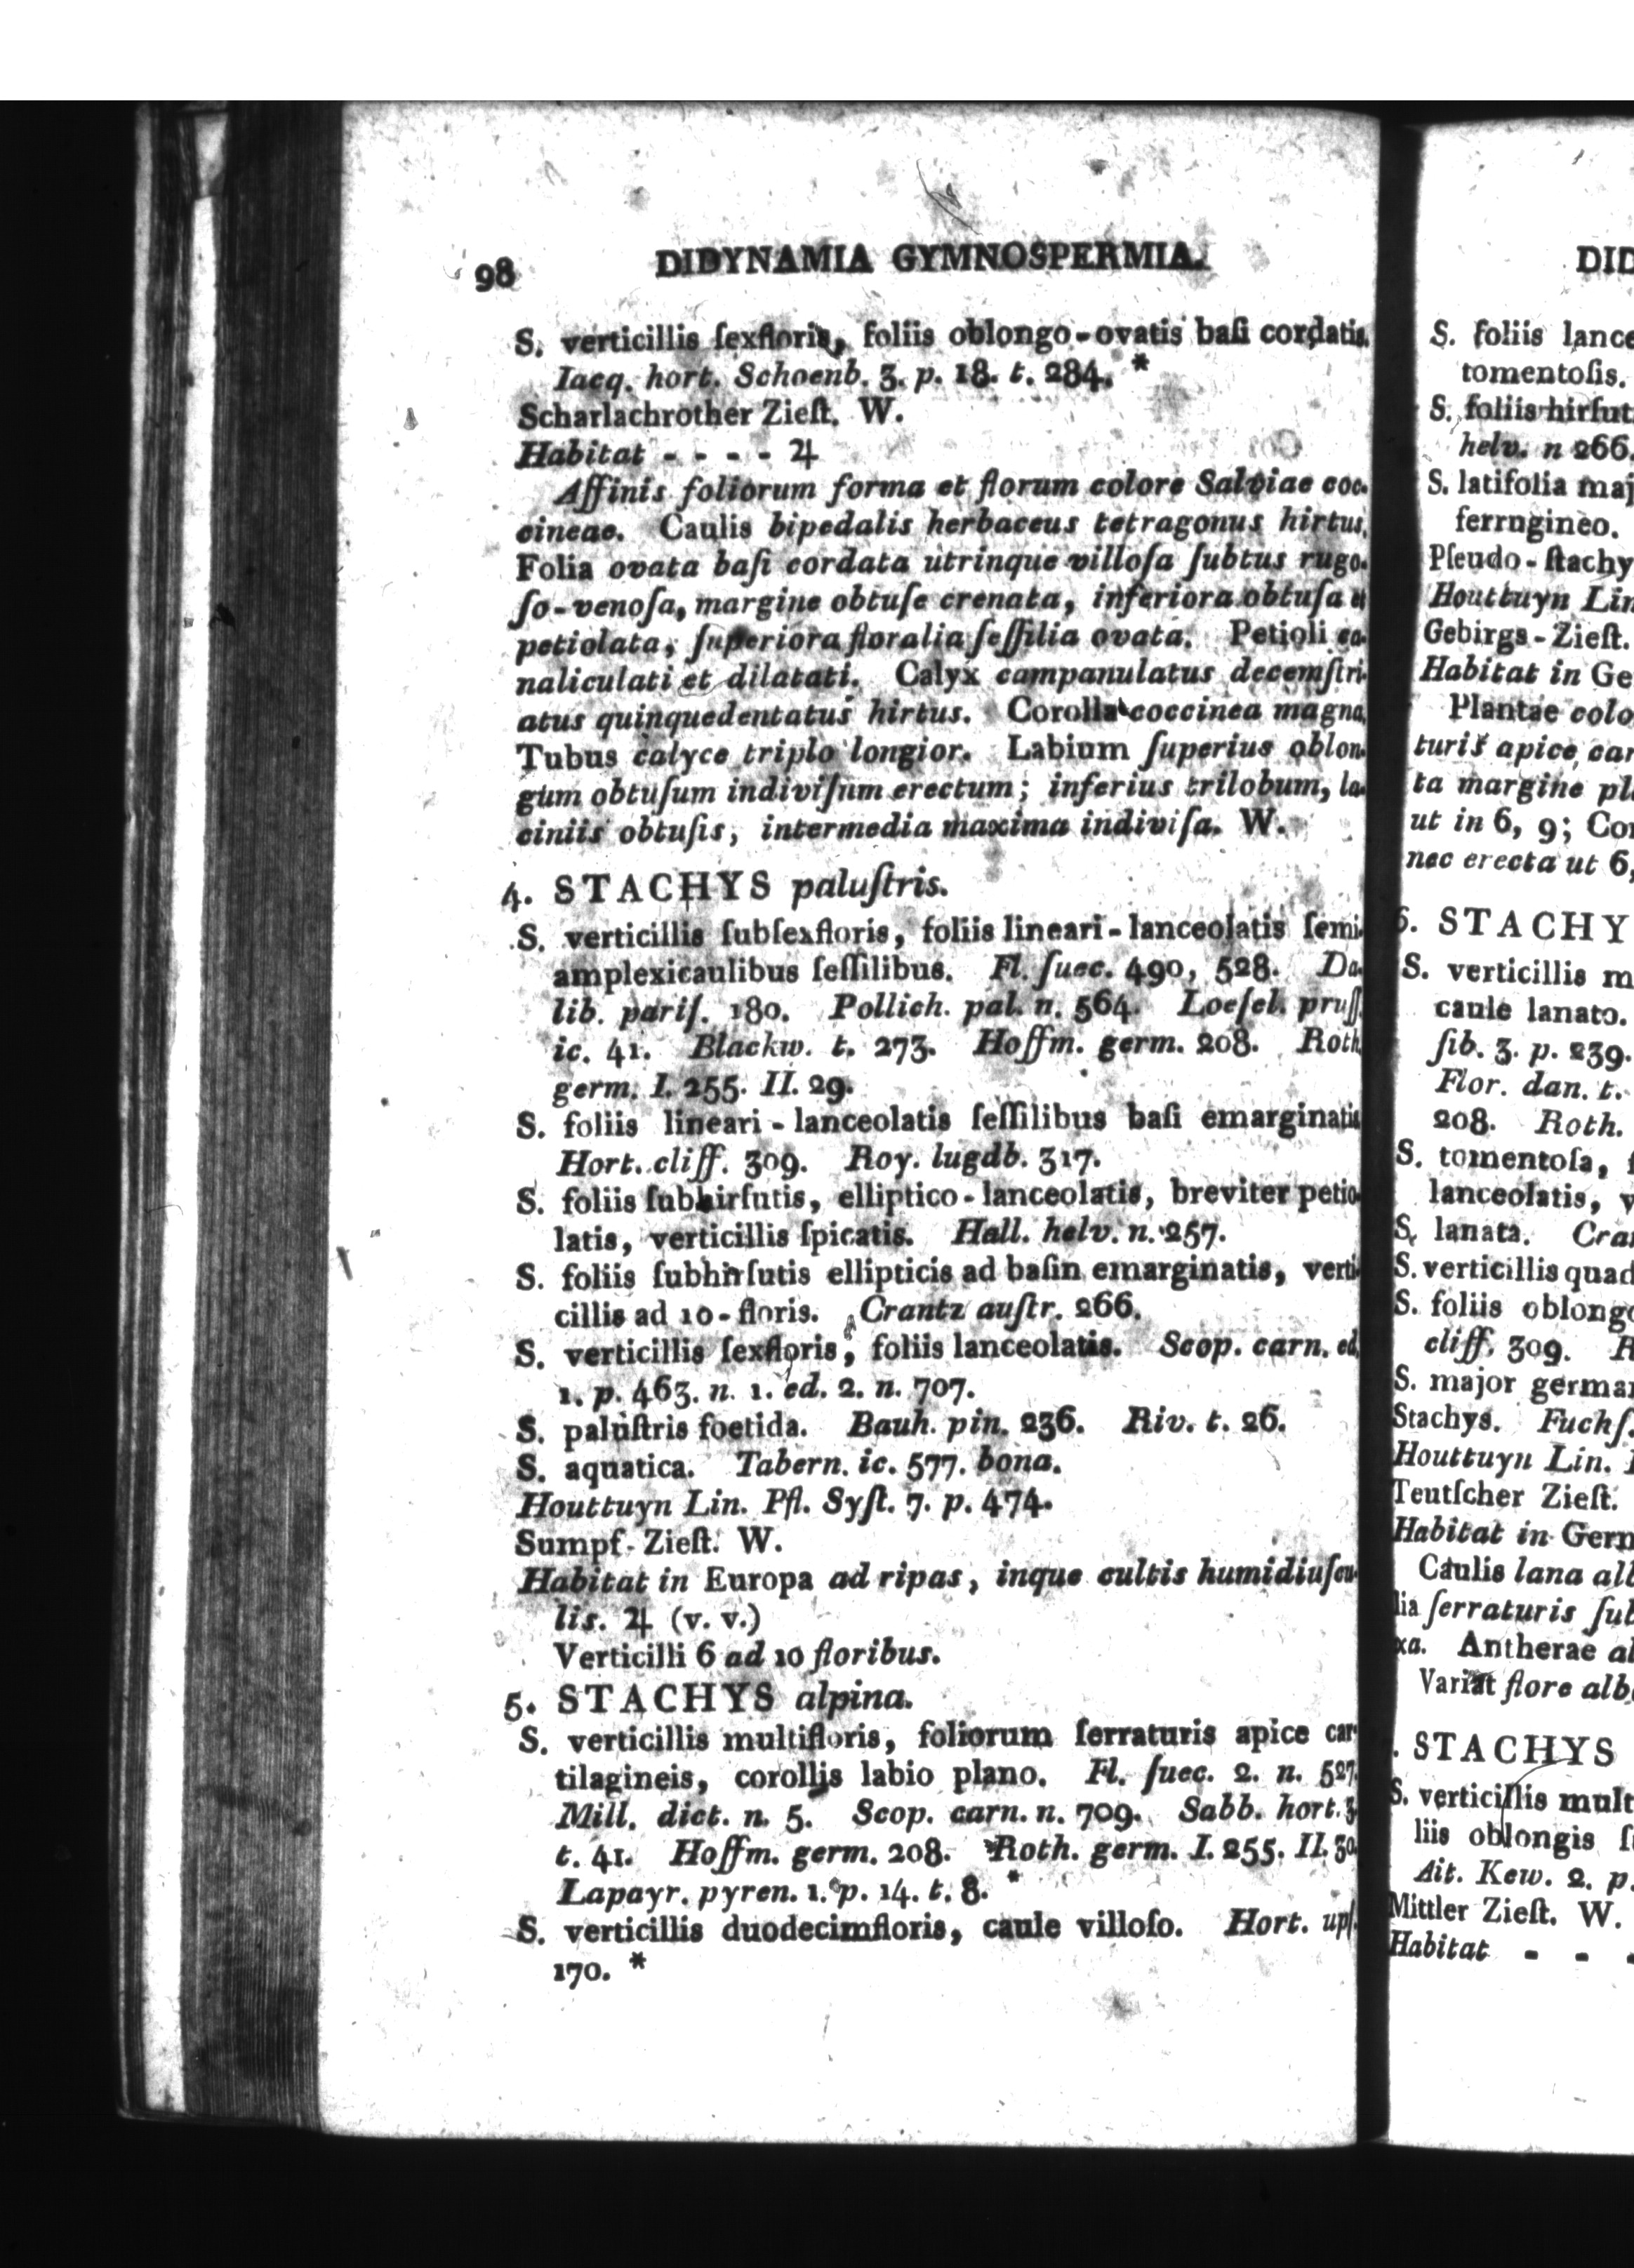 98 DIDYNAMIA GYMNOSPERMIA.
S. verticillis ſexfloris, foliis oblongo-ovatis baſi cordatis.
Iacq. hort. Schoenb. 3. p. 18. t. 284. *
Scharlachrother Zieſt. W.
Habitat - - - - ♃
Affinis foliorum forma et florum colore Salviae coc-
cineae. Caulis bipedalis herbaceus tetragonus hirtus.
Folia ovata baſi cordata utrinque villoſa ſubtus rugo-
ſo-venoſa, margine obtuſe crenata, inferiora obtuſa et
petiolata, ſuperiora floralia ſeſſilia ovata. Petioli ca-
naliculati et dilatati. Calyx campanulatus decemſtri-
atus quinquedentatus hirtus. Corolla coccinea magna.
Tubus calyce triplo longior. Labium ſuperius oblon-
gum obtuſum indiviſum erectum; inferius trilobum, la-
ciniis obtuſis, intermedia maxima indiviſa. W.
4. STACHYS paluſtris.
S. verticillis ſubſexfloris, foliis lineari-lanceolatis ſemi-
amplexicaulibus ſeſſilibus. Fl. ſuec. 490, 528. Da-
lib. pariſ. 180. Pollich. pal. n. 564. Loeſel. pruſſ.
ic. 41. Blackw. t. 273. Hoffm. germ. 208. Roth.
germ. I. 255. II. 29.
S. foliis lineari-lanceolatis ſeſſilibus baſi emarginatis
Hort. cliff. 309. Roy. lugdb. 317.
S. foliis ſubhirſutis, elliptico-lanceolatis, breviter petio-
latis, verticillis ſpicatis. Hall. helv. n. 257.
S. foliis ſubhirſutis ellipticis ad baſin emarginatis, verti-
cillis ad 10-floris. Crantz auſtr. 266.
S. verticillis ſexfloris, foliis lanceolatis. Scop. carn. ed.
1. p. 463. n. 1. ed. 2. n. 707.
S. paluſtris foetida. Bauh. pin. 236. Riv. t. 26.
S. aquatica. Tabern. ic. 577. bona.
Houttuyn Lin. Pfl. Syſt. 7. p. 474.
Sumpf-Zieſt. W.
Habitat in Europa ad ripas, inque cultis humidiuſcu-
lis. ♃ (v. v.)
Verticilli 6 ad 10 floribus.
5. STACHYS alpina.
S. verticillis multifloris, foliorum ſerraturis apice car-
tilagineis, corollis labio plano. Fl. ſuec. 2. n. 527.
Mill. dict. n. 5. Scop. carn. n. 709. Sabb. hort. 3.
t. 41. Hoffm. germ. 208. Roth. germ. I. 255. II. 30.
Lapayr. pyren. 1. p. 14. t. 8. *
S. verticillis duodecimfloris, caule villoſo. Hort. upſ.
170. *
DID
S. foliis lance
tomentoſis.
S. foliis hirſut
helv. n 266.
S. latifolia maj
ferrugineo.
Pſeudo-ſtachy
Houttuyn Lin
Gebirgs-Zieſt.
Habitat in Ge
Plantae colo
turis apice car
ta margine pl
ut in 6, 9; Cor
nec erecta ut 6,
6. STACHY
S. verticillis m
caule lanato.
ſib. 3. p. 239.
Flor. dan. t.
208. Roth.
S. tomentoſa, f
lanceolatis, v
S. lanata. Cran
S. verticillis quad
S. foliis oblongo
cliff. 309. R
S. major german
Stachys. Fuchſ.
Houttuyn Lin.
Teutſcher Zieſt.
Habitat in Germ
Caulis lana alb
lia ſerraturis ſub
xa. Antherae al
Variat flore alb
. STACHYS
S. verticillis mult
liis oblongis ſ
Ait. Kew. 2. p.
Mittler Zieſt. W.
Habitat - - -